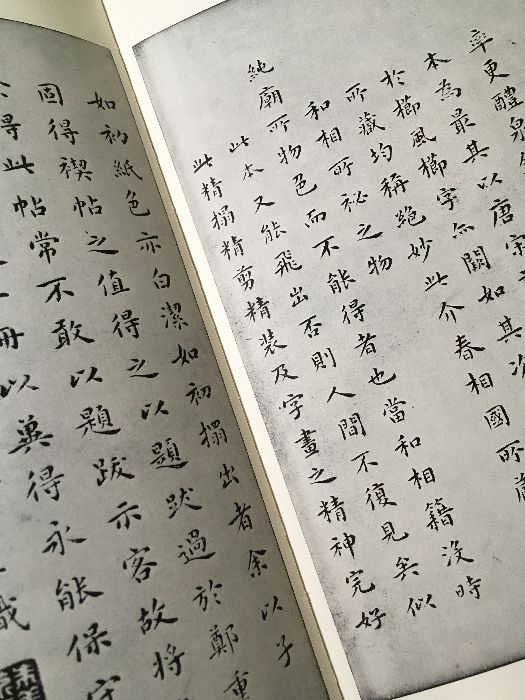 率更醴泉
本為最其以唐宋
於櫛風櫛字無闕如其次
所藏均稱絕妙此介春相國所藏
和相所祕之物
純廟所物色而不能得者也當和相籍沒時
此本又能飛出否則人間不復見矣似
此精搨精剪精裝及字畫之精神完好
如初紙色亦白潔如初搨出者余以子
固得禊帖之值得之以題跋過於鄭重
得此帖常不敢以題跋示客故將
冊以冀得永能保守